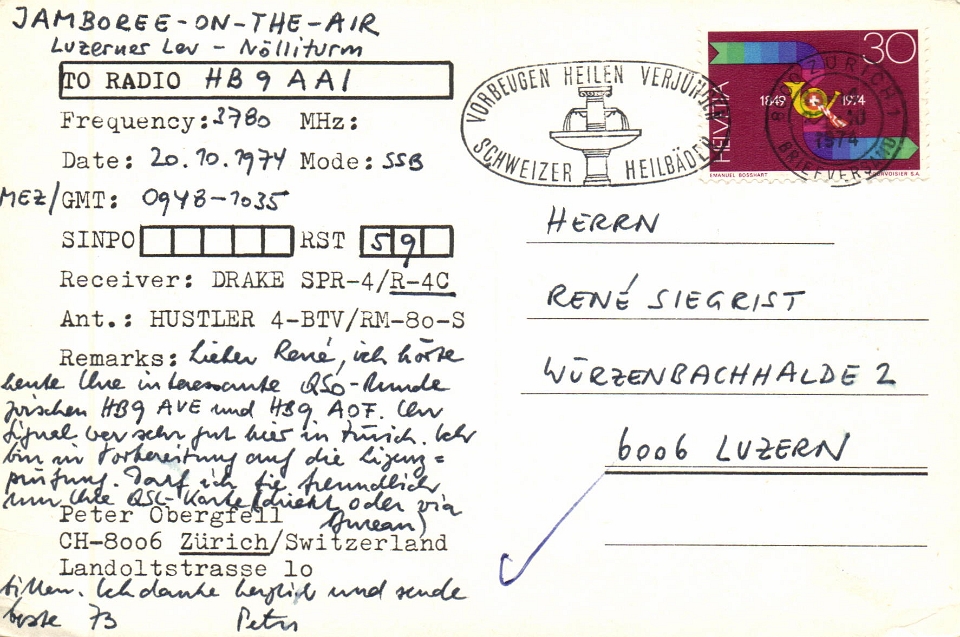 JAMBOREE-ON-THE-AIR
Luzernes Leu - Nölliturm
TO RADIO HB9AAI
Frequency: 3780 MHz:
Date: 20.10.1974 Mode: SSB
MEZ/GMT: 0948-1035
SINPO RST 59
Receiver: DRAKE SPR-4/R-4C
Ant.: HUSTLER 4-BTV/RM-80-S
Remarks: Lieber René, ich hörte
heute Ihre interessante QSO-Runde
zwischen HB9 AVE und HB9 AOF. Ihr
Signal war sehr gut hier in Zürich. Ich
bin in Vorbereitung auf die Lizenz=
prüfung. Darf ich Sie freundlich
um Ihre QSL-Karte (direkt oder via
Bureau)
Peter Obergfell
CH-8006 Zürich/Switzerland
Landoltstrasse 10
bitten. Ich danke herzlich und sende
beste 73 Peter
VORBEUGEN HEILEN VERJÜNGEN
SCHWEIZER HEILBÄDER
30
HELVETIA
1849 1974
EMANUEL BOSSHART COURVOISIER S.A.
ZÜRICH 1
1974
BRIEFVERSAND
HERRN
RENÉ SIEGRIST
WÜRZENBACHHALDE 2
6006 LUZERN